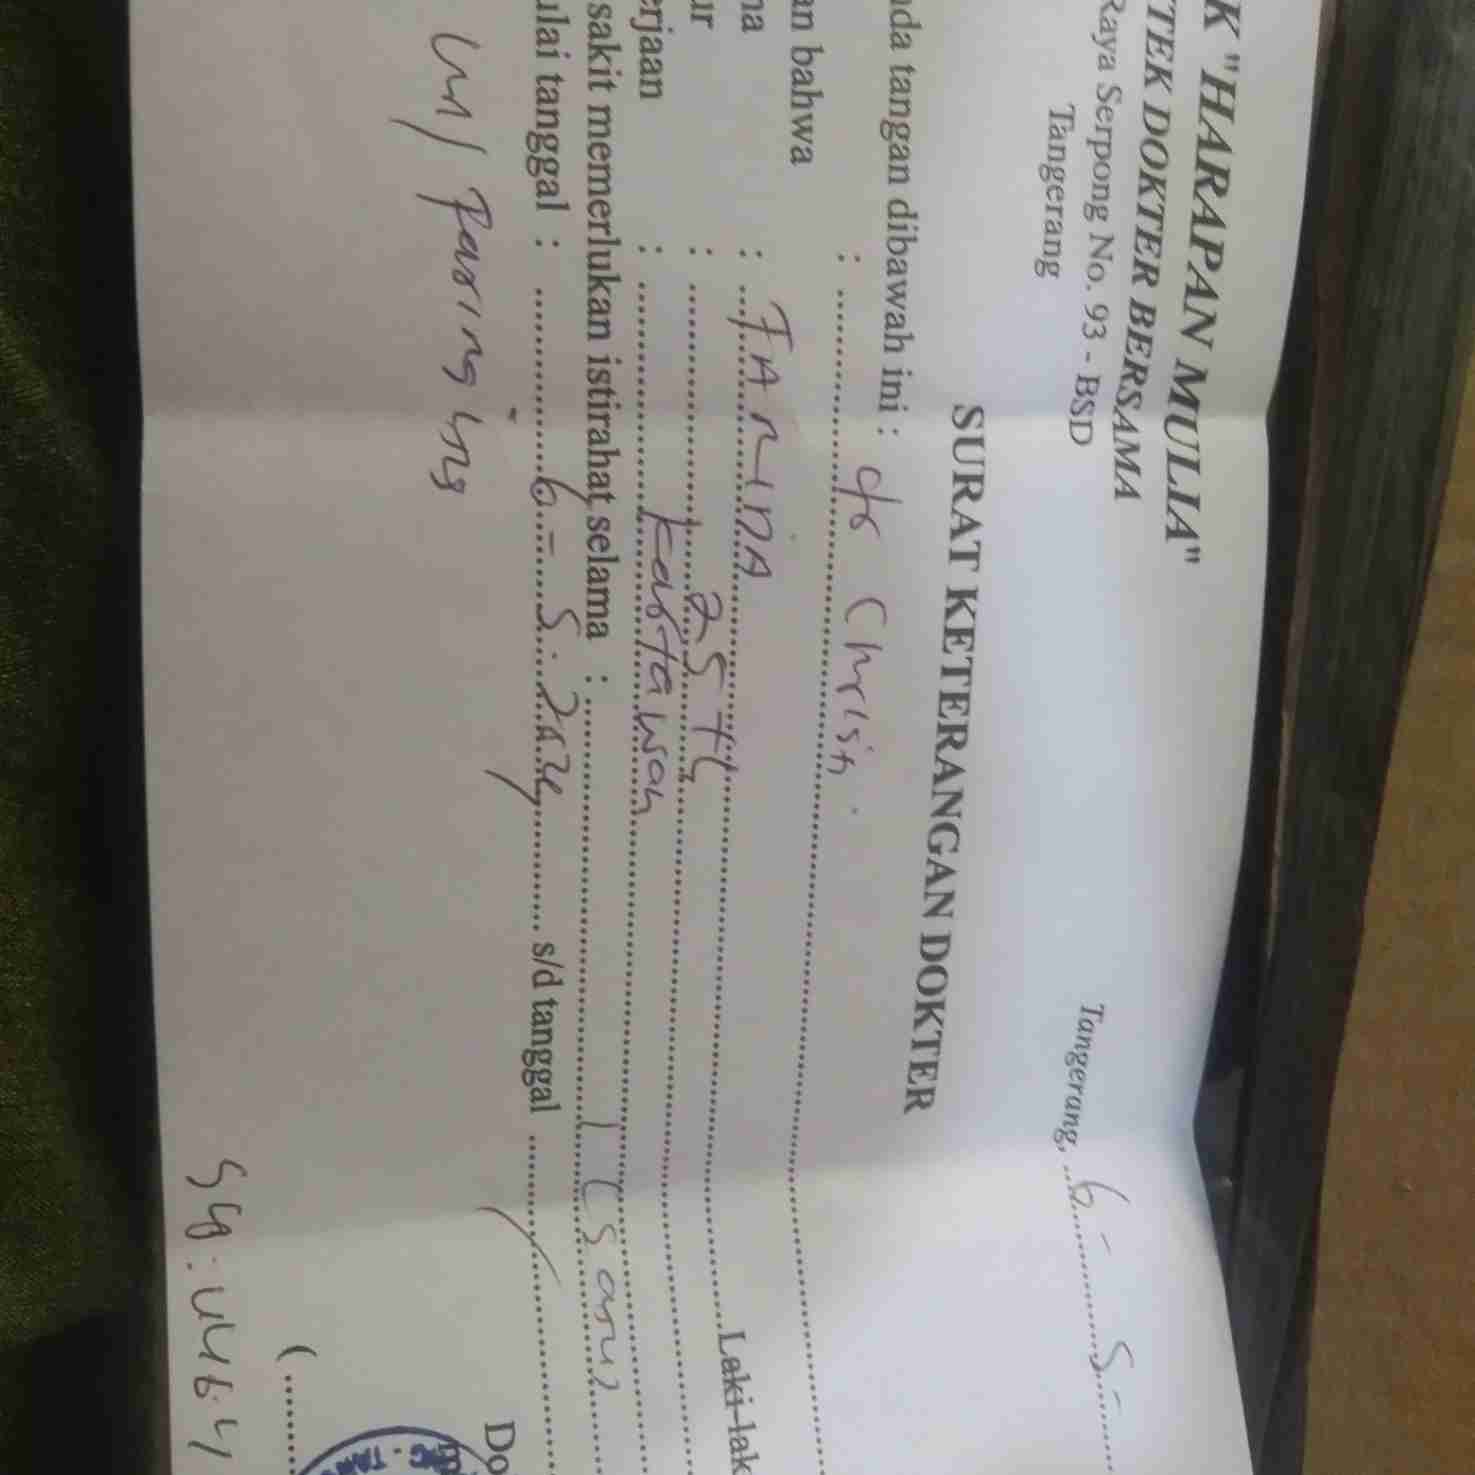 K "HARAPAN MULIA"
TEK DOKTER BERSAMA
Raya Serpong No. 93 - BSD
Tangerang
Tangerang, 6 - 5 -
SURAT KETERANGAN DOKTER
nda tangan dibawah ini :
: dr Chrisn.
an bahwa
na : FARIDA Laki-lak
ur : 25 th
erjaan : Kartawan
sakit memerlukan istirahat selama : 1 (satu)
ulai tanggal : 6 - 5 - s/d tanggal
Do
(